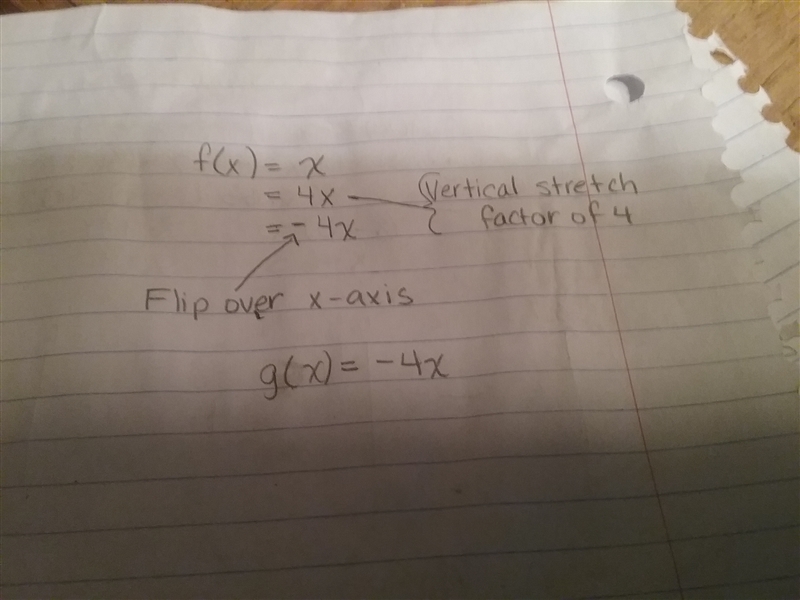 f(x) = x
= 4x
Vertical stretch
factor of 4
= - 4x
Flip over x-axis
g(x) = -4x